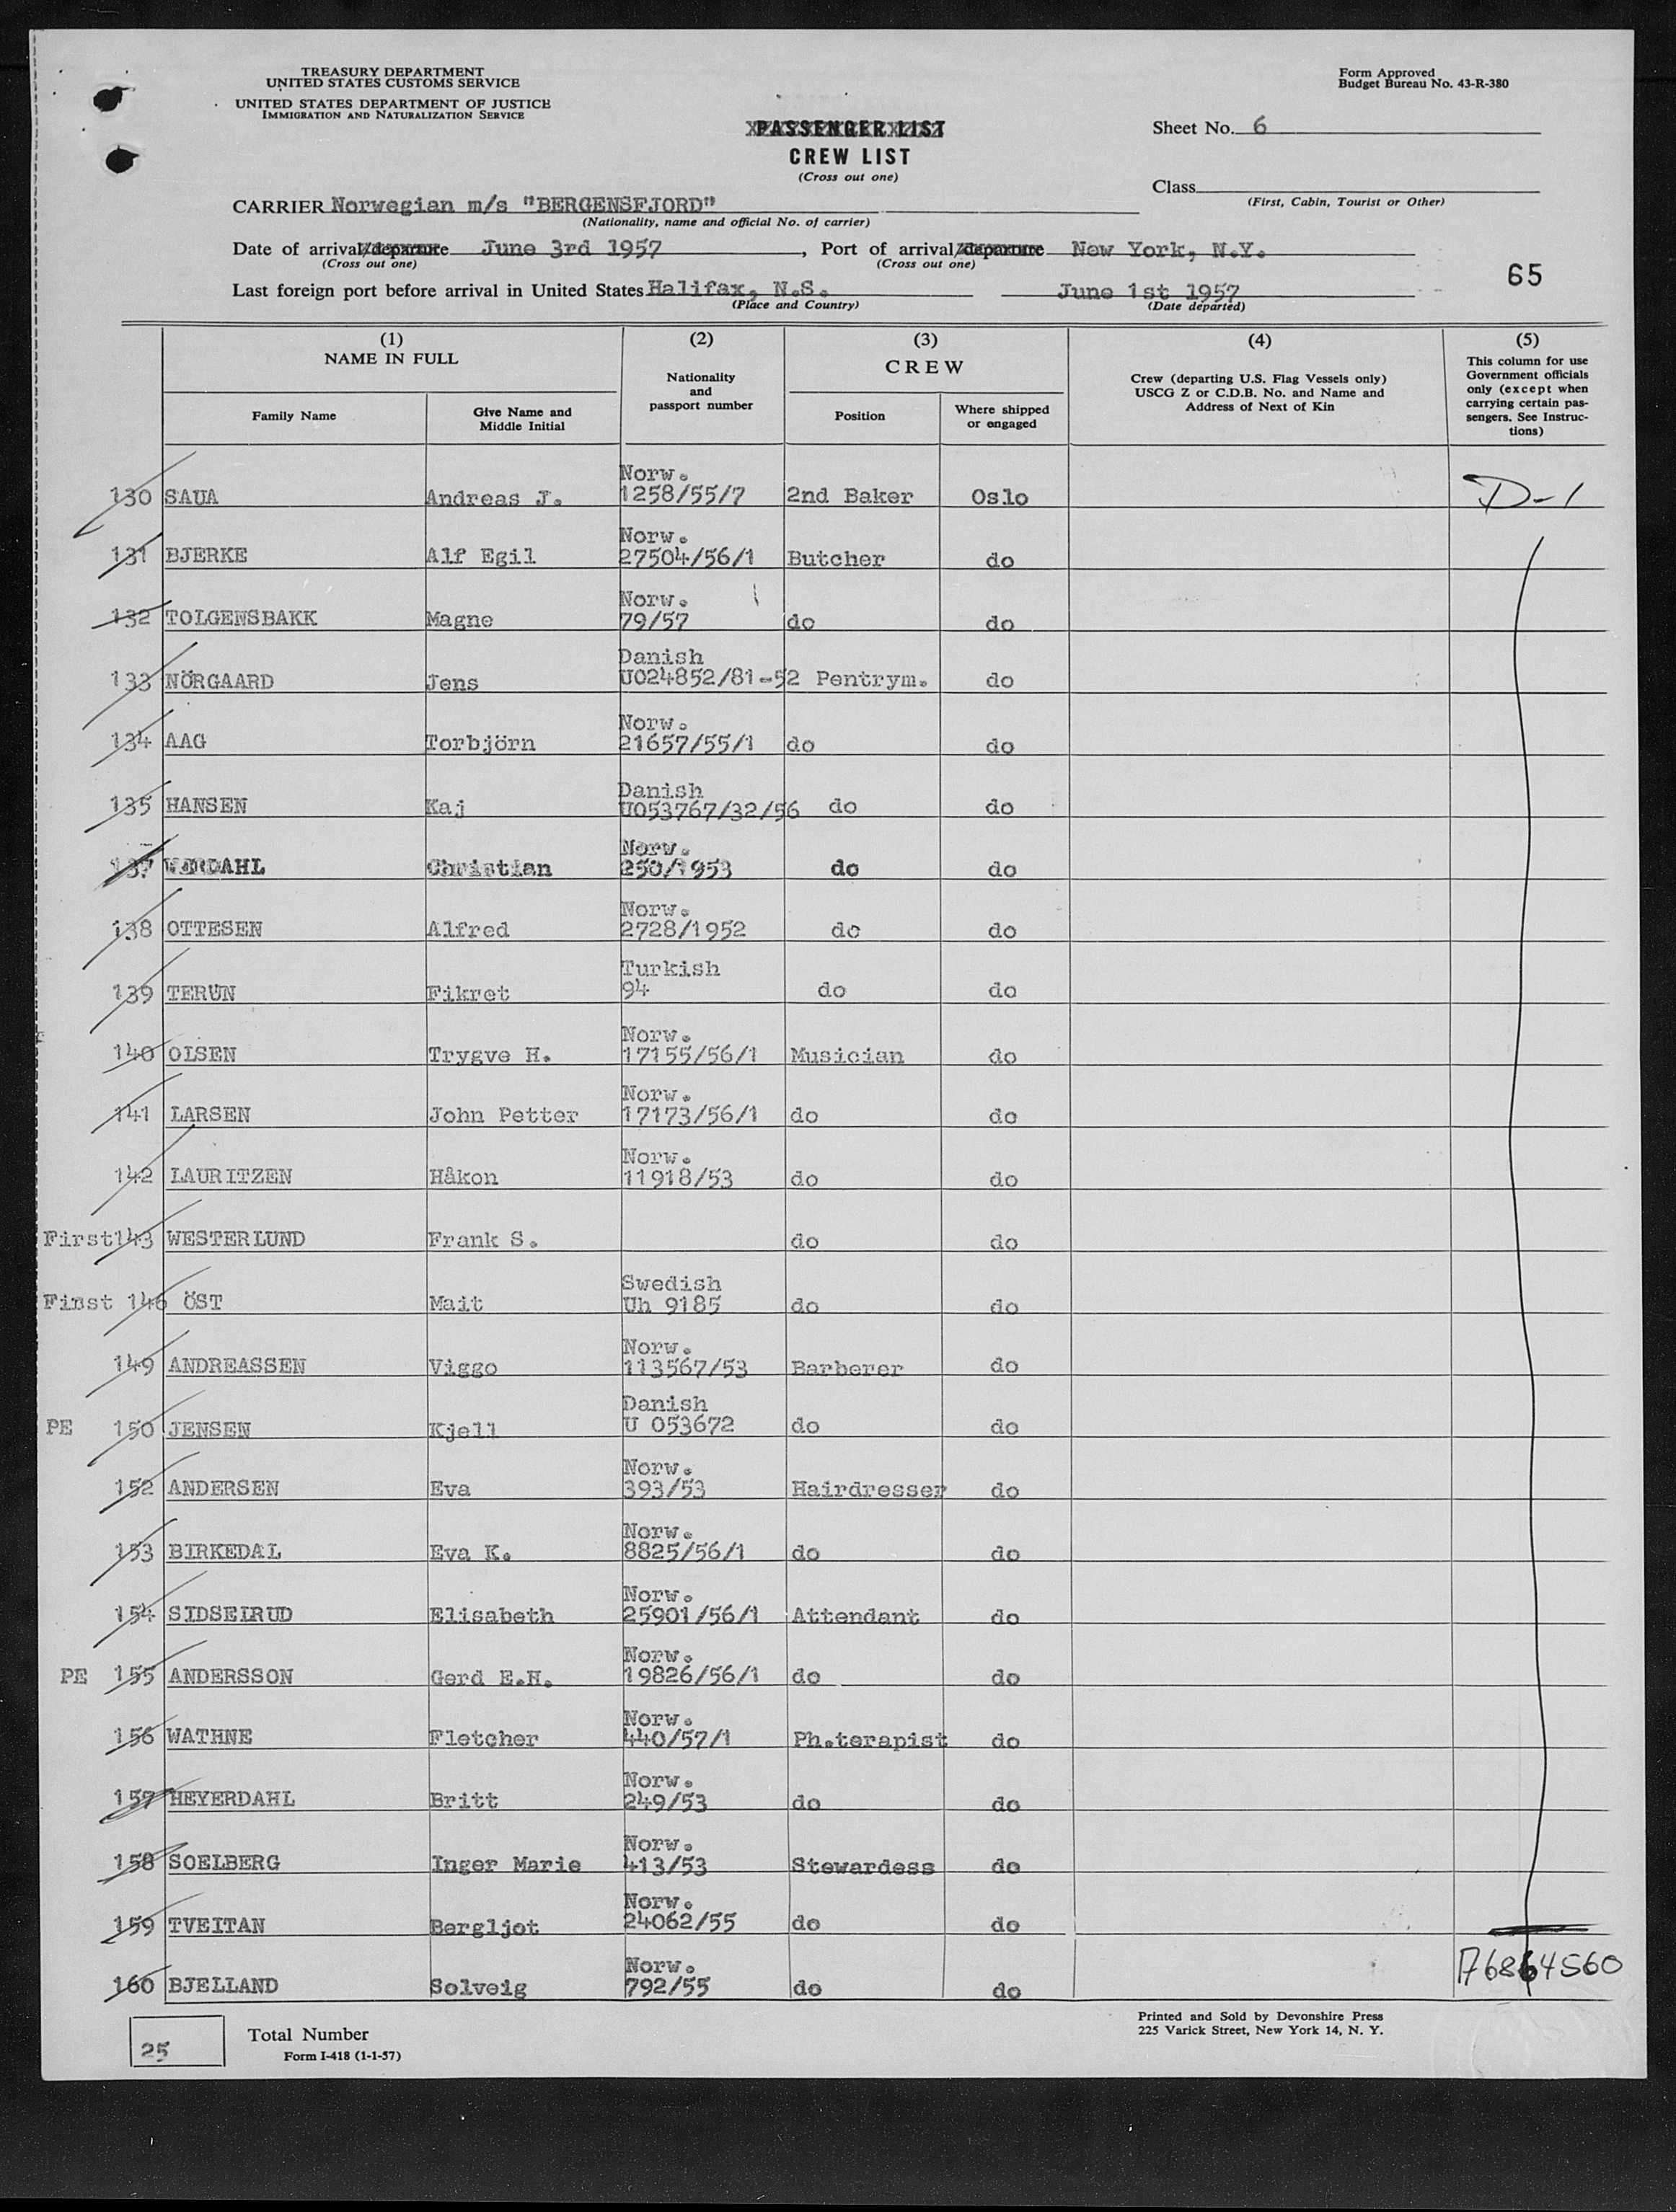 TREASURY DEPARTMENT
UNITED STATES CUSTOMS SERVICE
UNITED STATES DEPARTMENT OF JUSTICE
IMMIGRATION AND NATURALIZATION SERVICE
Form Approved
Budget Bureau No. 43-R-380
PASSENGER LIST
CREW LIST
(Cross out one)
Sheet No. 6
Class
(First, Cabin, Tourist or Other)
CARRIER Norwegian m/s "BERGENSFJORD"
(Nationality, name and official No. of carrier)
Date of arrival/departure June 3rd 1957, Port of arrival/departure New York, N.Y.
(Cross out one) (Cross out one)
65
Last foreign port before arrival in United States Halifax, N.S. June 1st 1957
(Place and Country) (Date departed)
(1) NAME IN FULL
Family Name
Give Name and Middle Initial
(2)
Nationality and passport number
(3) CREW
Position
Where shipped or engaged
(4)
Crew (departing U.S. Flag Vessels only)
USCG Z or C.D.B. No. and Name and
Address of Next of Kin
(5)
This column for use
Government officials
only (except when
carrying certain pas-
sengers. See Instruc-
tions)
Norw.
130 SAUA Andreas J. 1258/55/7 2nd Baker Oslo D-1
Norw.
131 BJERKE Alf Egil 27504/56/1 Butcher do
Norw.
132 TOLGENSBAKK Magne 79/57 do do
Danish
133 NÖRGAARD Jens U024852/81-52 Pentrym. do
Norw.
134 AAG Torbjörn 21657/55/1 do do
Danish
135 HANSEN Kaj U053767/32/56 do do
Norw.
137 Christian 250/1953 do do
Norw.
138 OTTESEN Alfred 2728/1952 do do
Turkish
139 TERUN Fikret 94 do do
Norw.
140 OLSEN Trygve H. 17155/56/1 Musician do
Norw.
141 LARSEN John Petter 17173/56/1 do do
Norw.
142 LAURITZEN Håkon 11918/53 do do
First 143 WESTERLUND Frank S. do do
Swedish
First 146 ÖST Mait Uh 9185 do do
Norw.
149 ANDREASSEN Viggo 113567/53 Barberer do
Danish
PE 150 JENSEN Kjell U 053672 do do
Norw.
152 ANDERSEN Eva 393/53 Hairdresser do
Norw.
153 BIRKEDAL Eva K. 8825/56/1 do do
Norw.
154 SIDSELRUD Elisabeth 25901/56/1 Attendant do
Norw.
PE 155 ANDERSSON Gerd E.H. 19826/56/1 do do
Norw.
156 WATHNE Fletcher 440/57/1 Ph.terapist do
Norw.
157 HEYERDAHL Britt 249/53 do do
Norw.
158 SOELBERG Inger Marie 413/53 Stewardess do
Norw.
159 TVEITAN Bergljot 24062/55 do do
Norw.
160 BJELLAND Solveig 792/55 do do A6864560
25 Total Number
Form I-418 (1-1-57)
Printed and Sold by Devonshire Press
225 Varick Street, New York 14, N. Y.